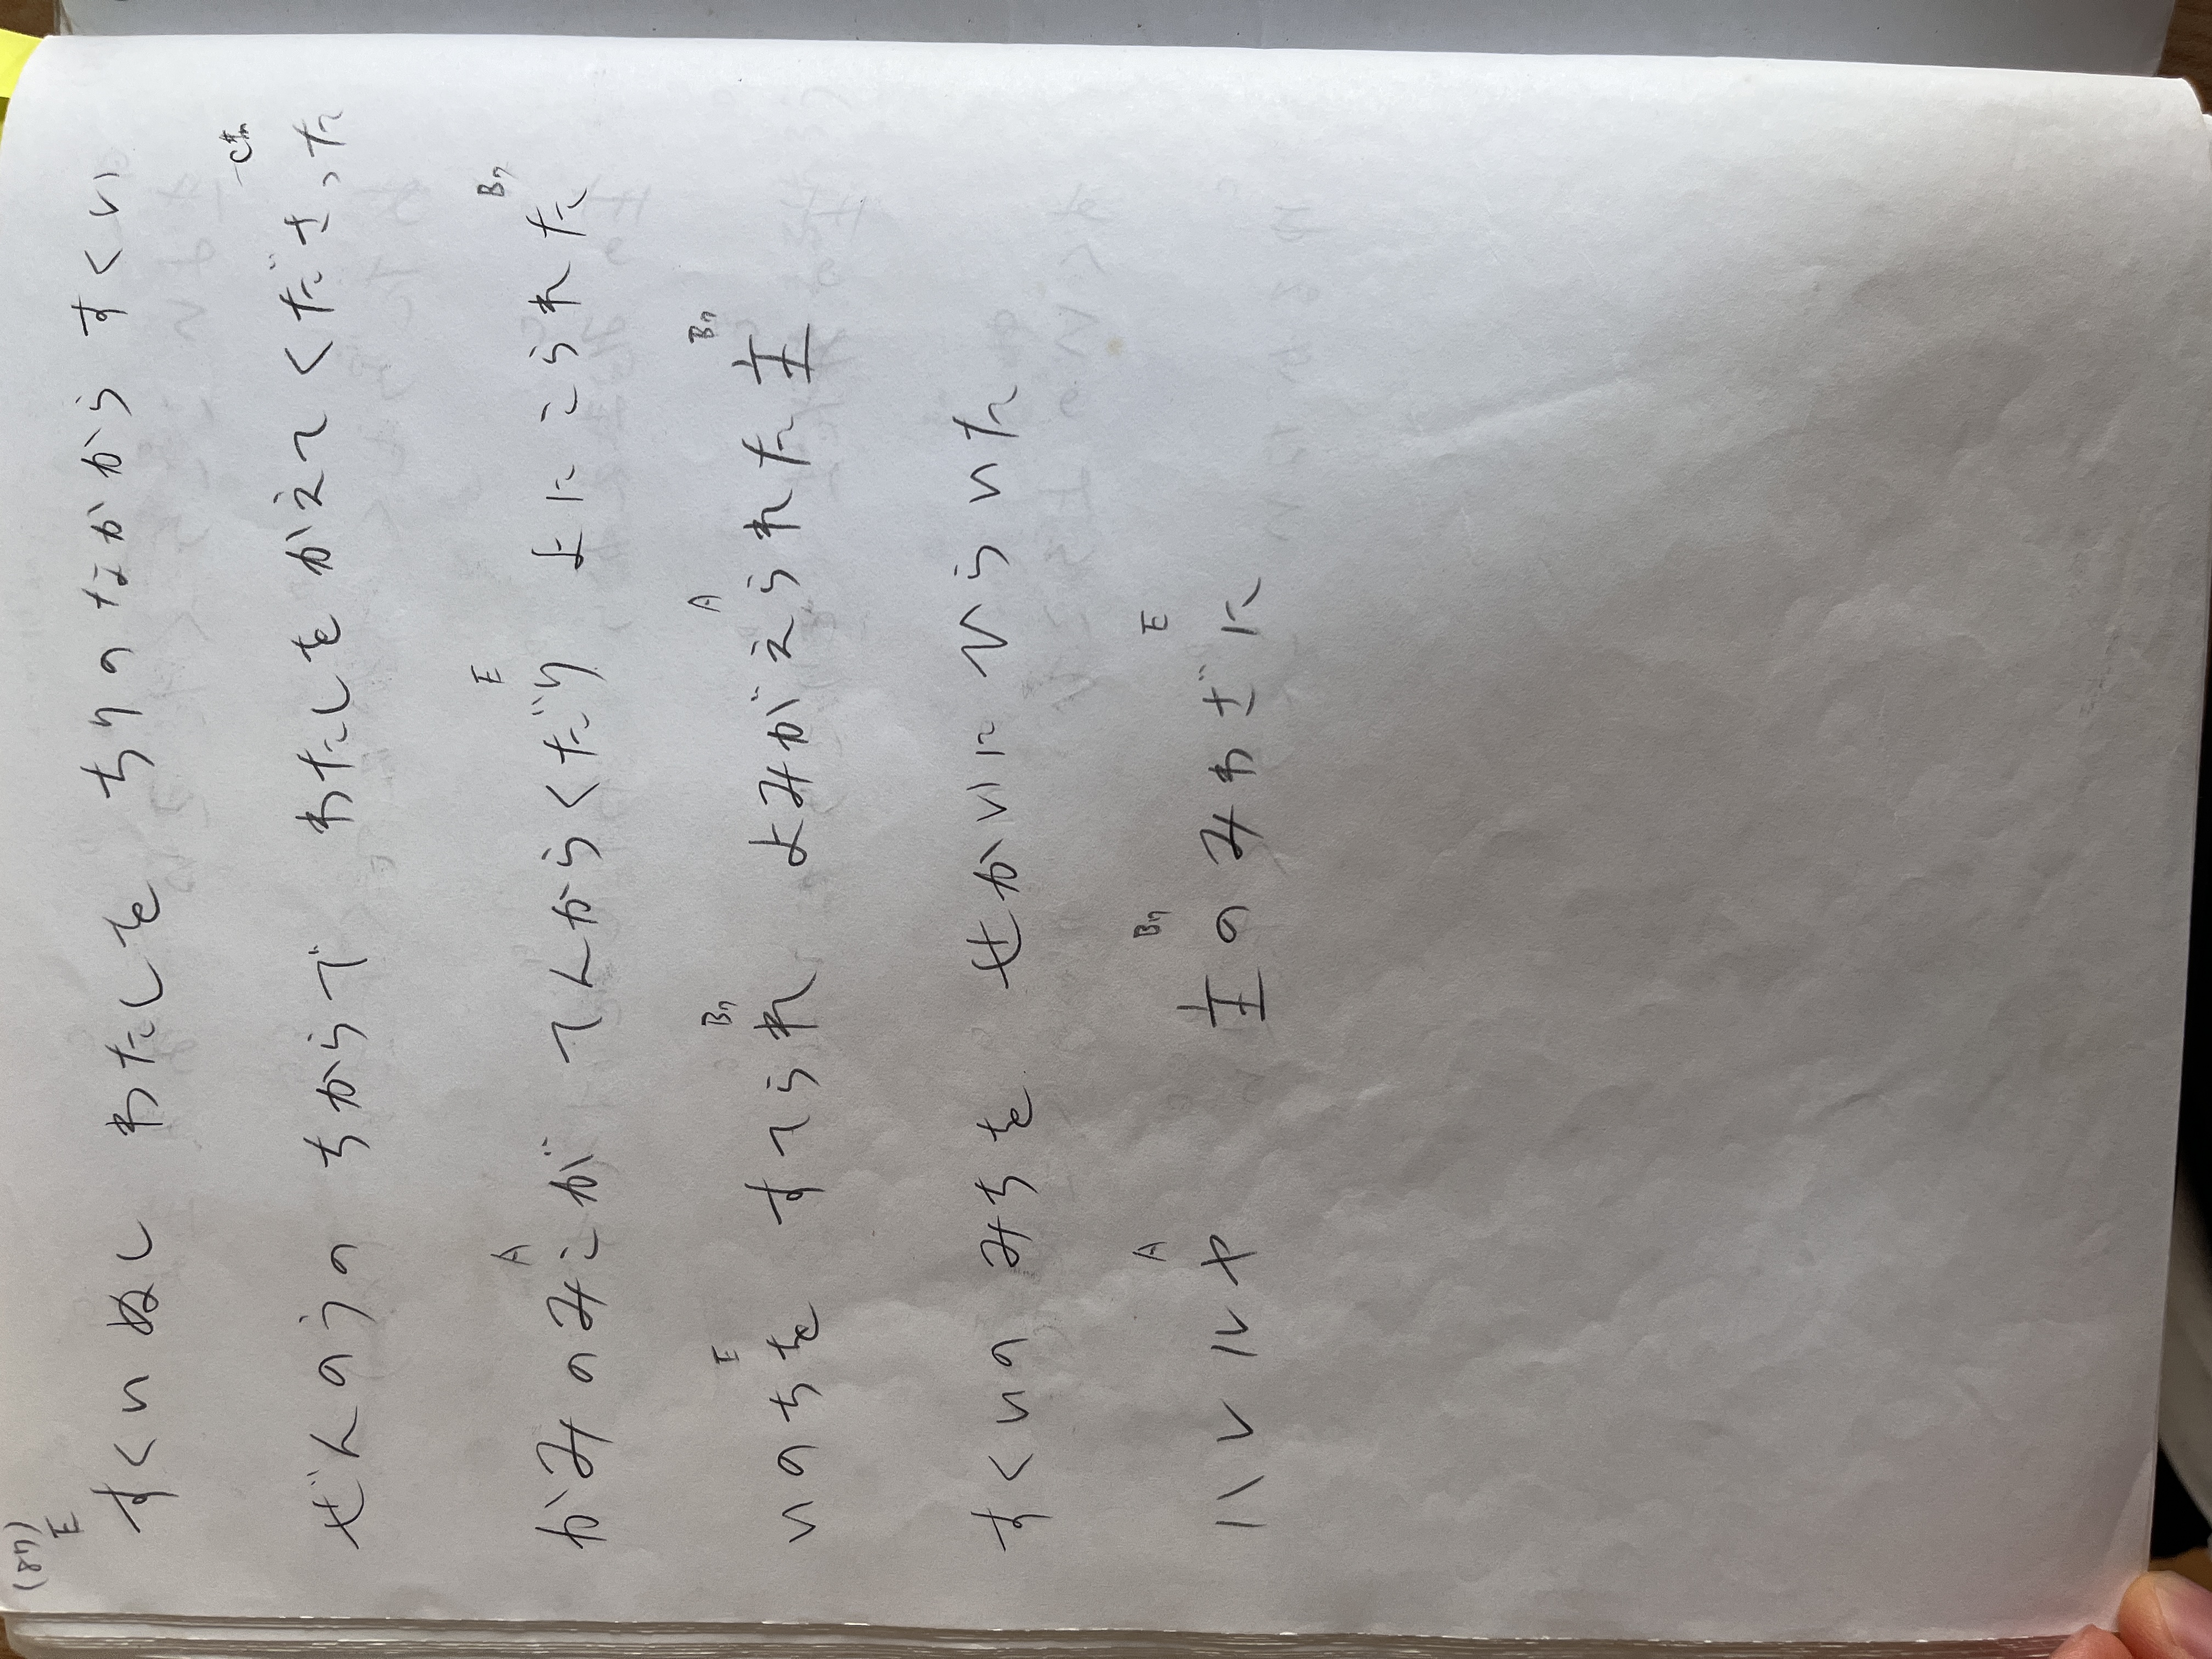 (87)
E
すくいぬし わたしを ちりのなかから すくい
C#m
ぜんのうの ちからで わたしを かえて くださった
A E B7
かみのみこが てんからくだり よに こられた
E B7 A B7
いのちを すてられ よみがえられた 主
すくいの みちを せかいに ひらいた
A B7 E
ハレルヤ 主のみわざに